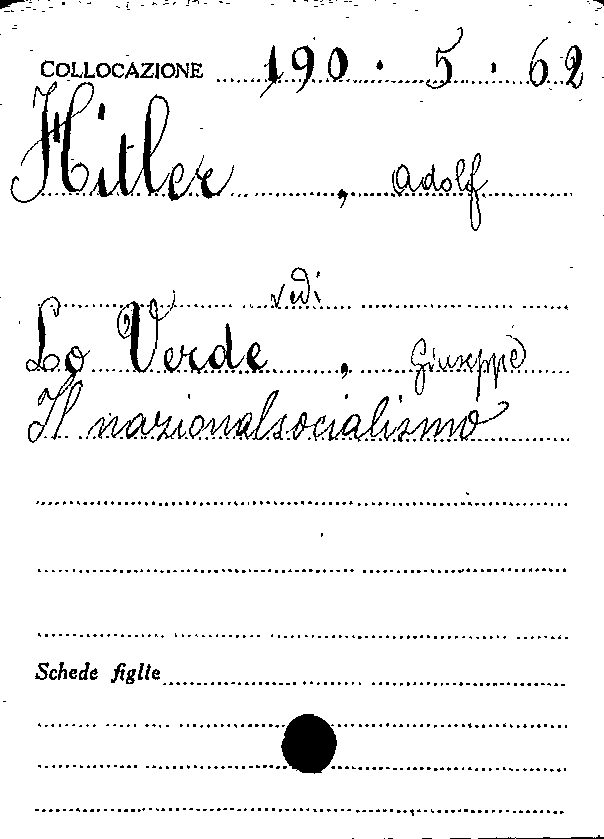 COLLOCAZIONE 190 . 5 . 62
Hitler , Adolf
vedi
Lo Verde , Giuseppe
Il nazionalsocialismo
Schede figlie